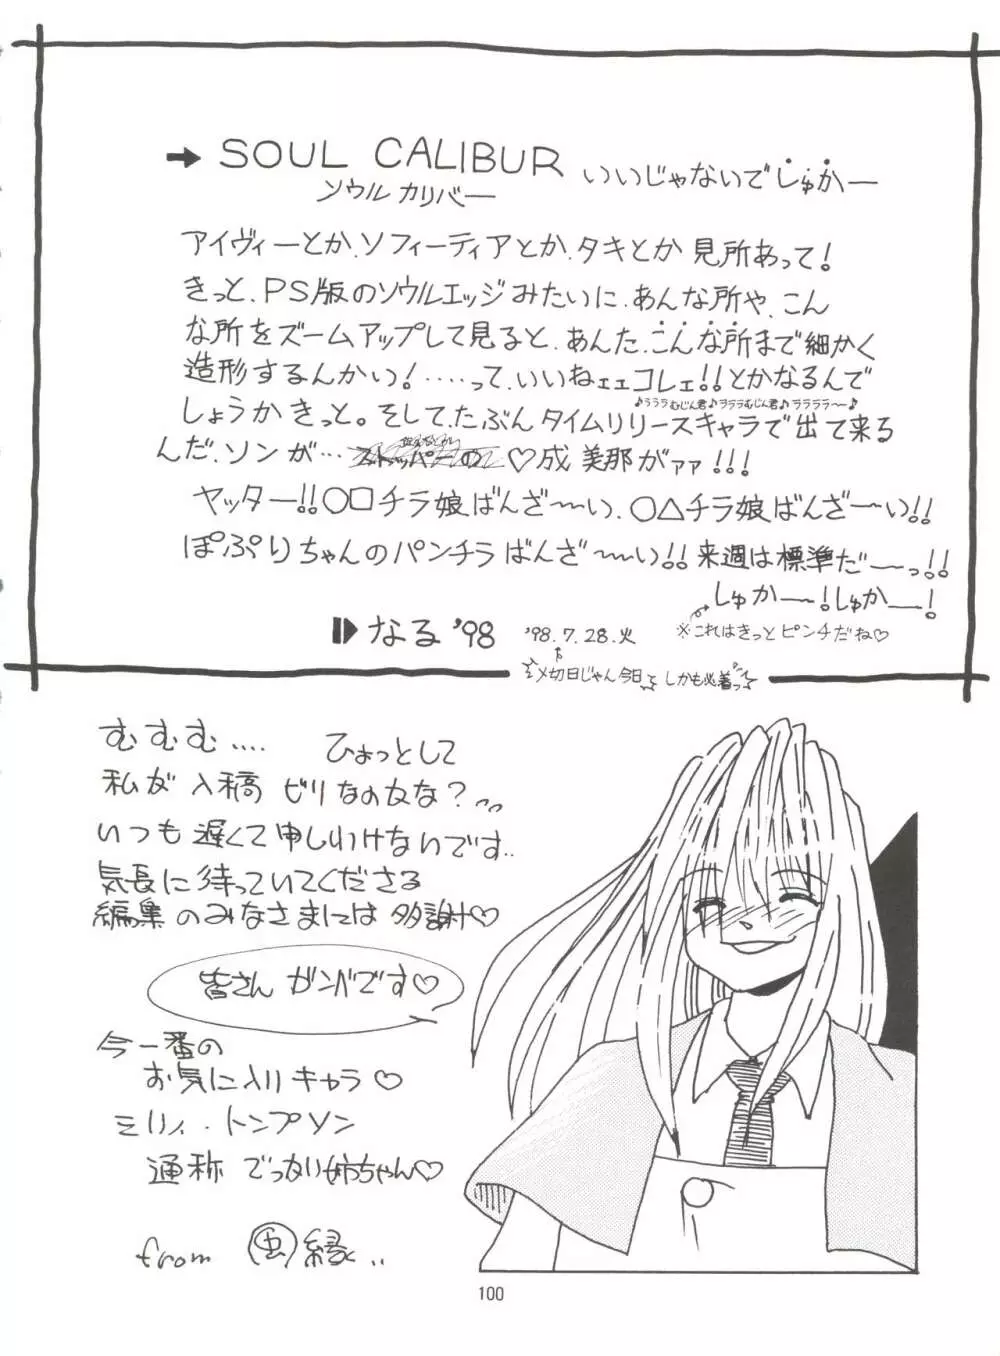 ➡ SOUL CALIBUR いいじゃないでしゅかー
ソウル カリバー
アイヴィーとか、ソフィーティアとか、タキとか見所あって!
きっと、PS版のソウルエッジみたいに、あんな所や、こん
な所をズームアップして見ると、あんた、こんな所まで細かく
造形するんかい!‥‥って、いいねェェコレェ!!とかなるんで
♪ラララむじん君♪ラララむじん君♪ララララ〜♪
しょうかきっと。そして、たぶんタイムリリースキャラで出て来る
んだ、ソンが… ♡成美那がァァ!!!
ヤッター!!○□チラ娘ばんざ〜い、○△チラ娘ばんざ〜い!!
ぽぷりちゃんのパンチラばんざ〜い!!来週は標準だーっ!!
しゅかー!しゅかー!
※これはきっとピンチだね♡
なる'98
'98.7.28.火
〆切日じゃん今日 しかも必着っ
むむむ‥‥ ひょっとして
私が入稿ビリなのかな?
いつも遅くて申しわけないです‥
気長に待っていてくださる
編集のみなさまには多謝♡
皆さん ガンバです♡
今一番の
お気に入りキャラ♡
ミリィ・トンプソン
通称 でっかい姉ちゃん♡
from 虫縁‥
100